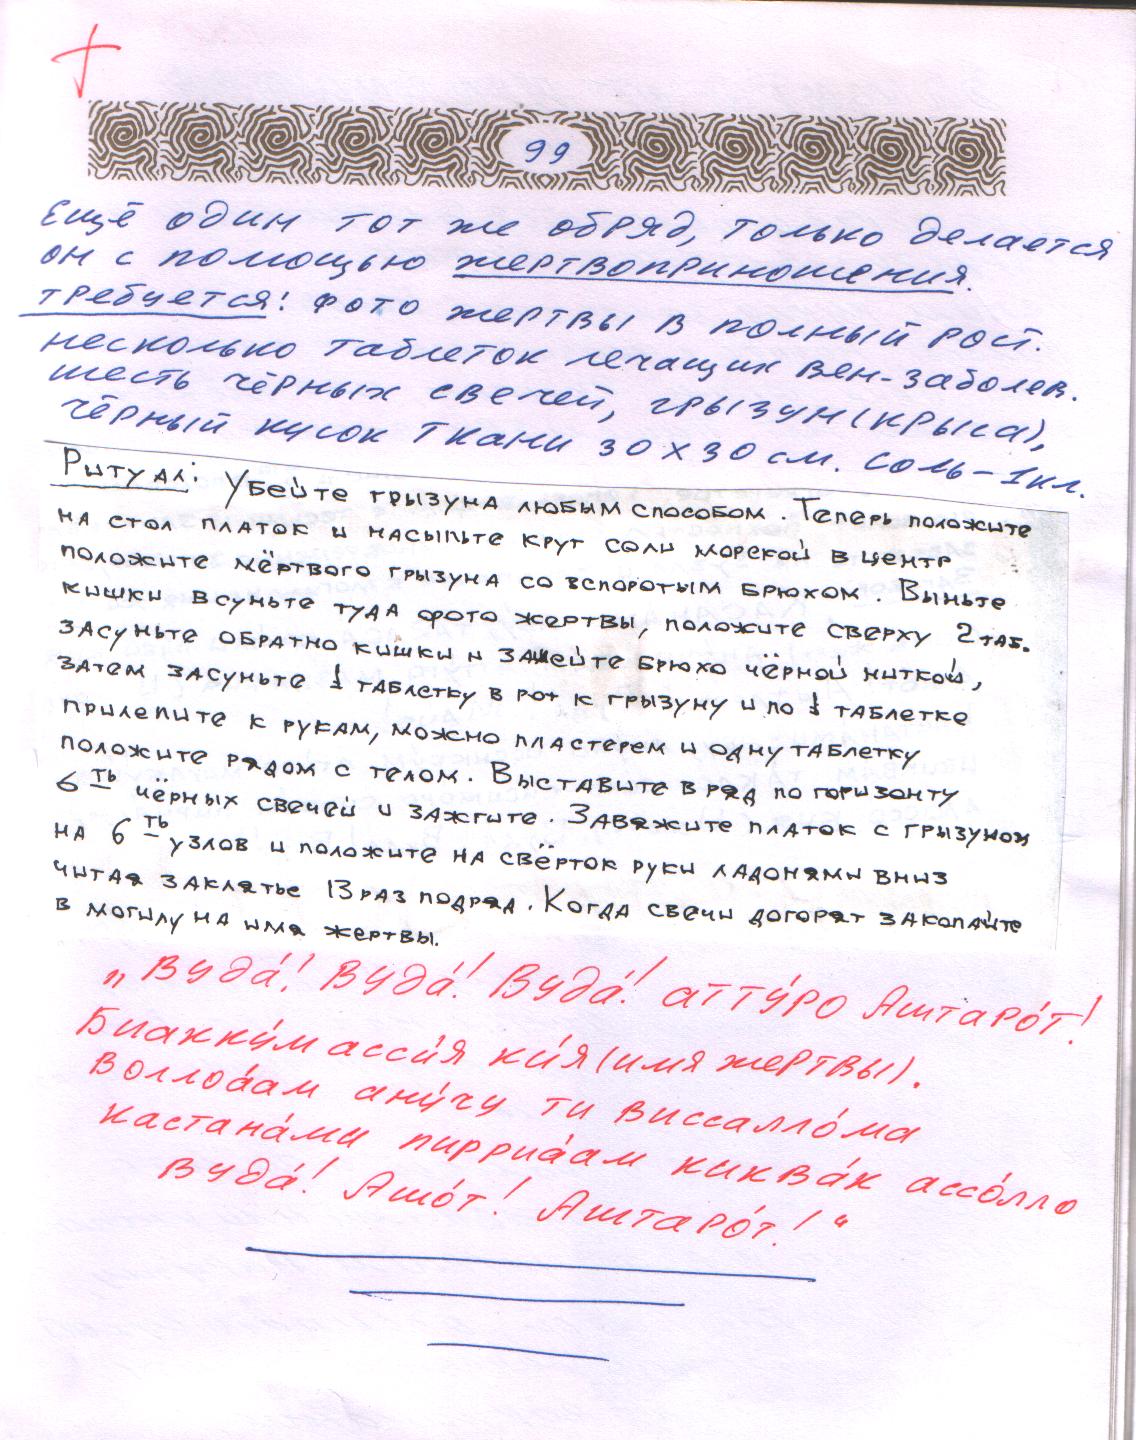 99
Ещё один тот же обряд, только делается
он с помощью жертвоприношения.
требуется: фото жертвы в полный рост.
несколько таблеток лечащих вен-заболев.
шесть чёрных свечей, грызун(крыса),
чёрный кусок ткани 30х30 см. соль-1кл.
Ритуал: Убейте грызуна любым способом. Теперь положите
на стол платок и насыпьте круг соли морской в центр
положите мёртвого грызуна со вспоротым брюхом. Выньте
кишки всуньте туда фото жертвы, положите сверху 2 таб.
засуньте обратно кишки и зашейте брюхо чёрной ниткой,
затем засуньте 1 таблетку в рот к грызуну и по 1 таблетке
прилепите к рукам, можно пластерем и одну таблетку
положите рядом с телом. Выставите в ряд по горизонту
6ть черных свечей и зажгите. Завяжите платок с грызуном
на 6ть узлов и положите на свёрток руки ладонями вниз
читая заклятье 13 раз подряд. Когда свечи догорят закопайте
в могилу на имя жертвы.
„Вуда́! Вуда́! Вуда́! атту́ро Аштаро́т!
Биакку́м асси́я ки́я(имя жертвы).
Воллоа́ам ану́чу ти Виссалло́ма
Кастана́ми пирриа́ам киква́к ассо́лло
Вуда́! Ашо́т! Аштаро́т!“